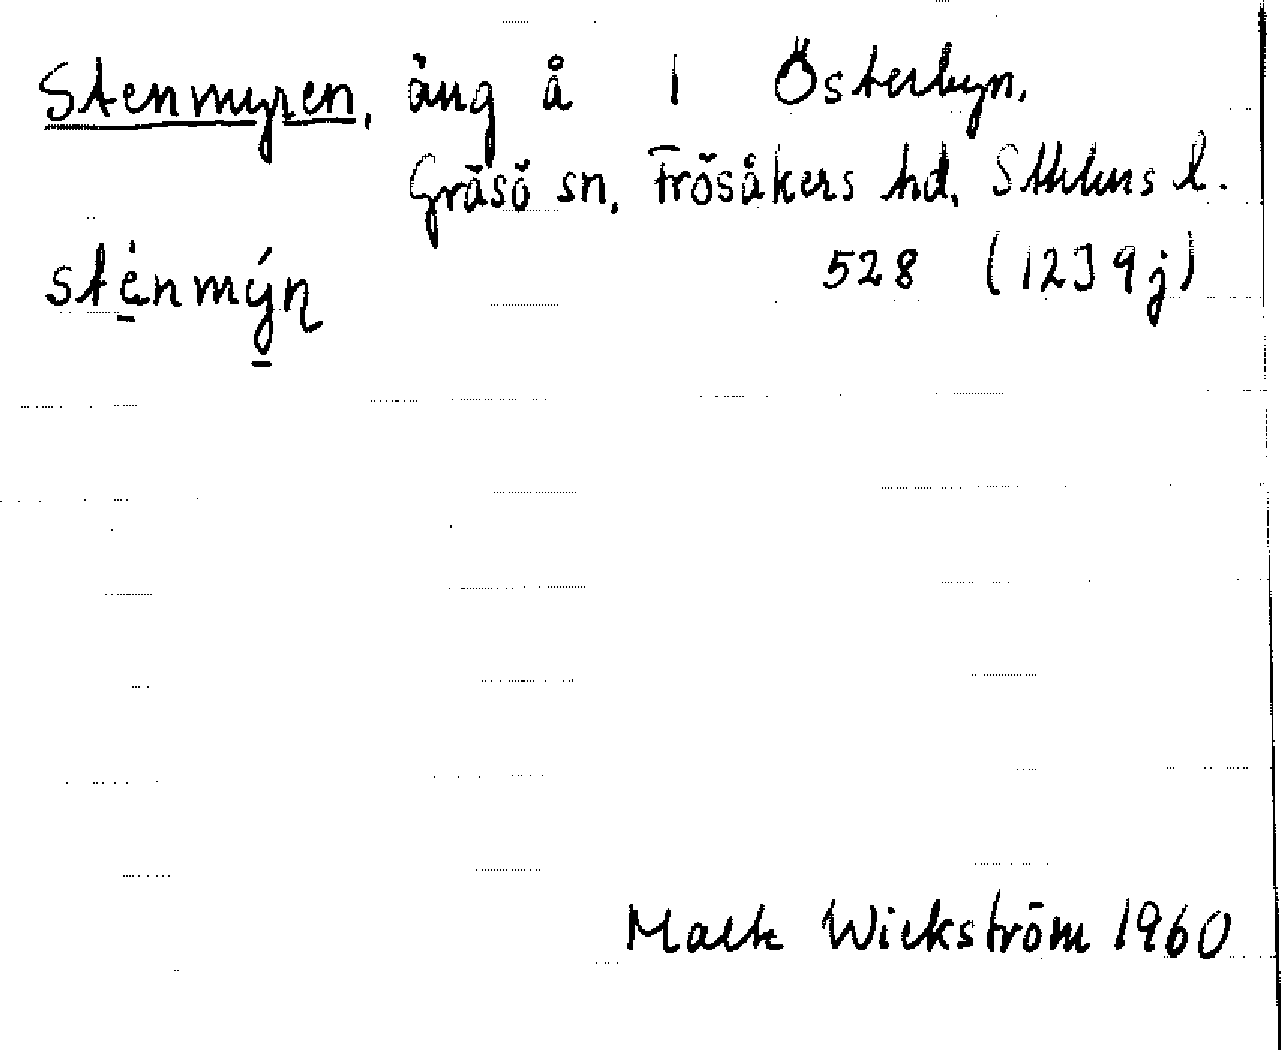 Stenmyren, äng å 1 Österbyn,
Gräsö sn, Frösåkers hd, Sthlms l.
sténmýn 528 (1239j)
Maek Wickström 1960